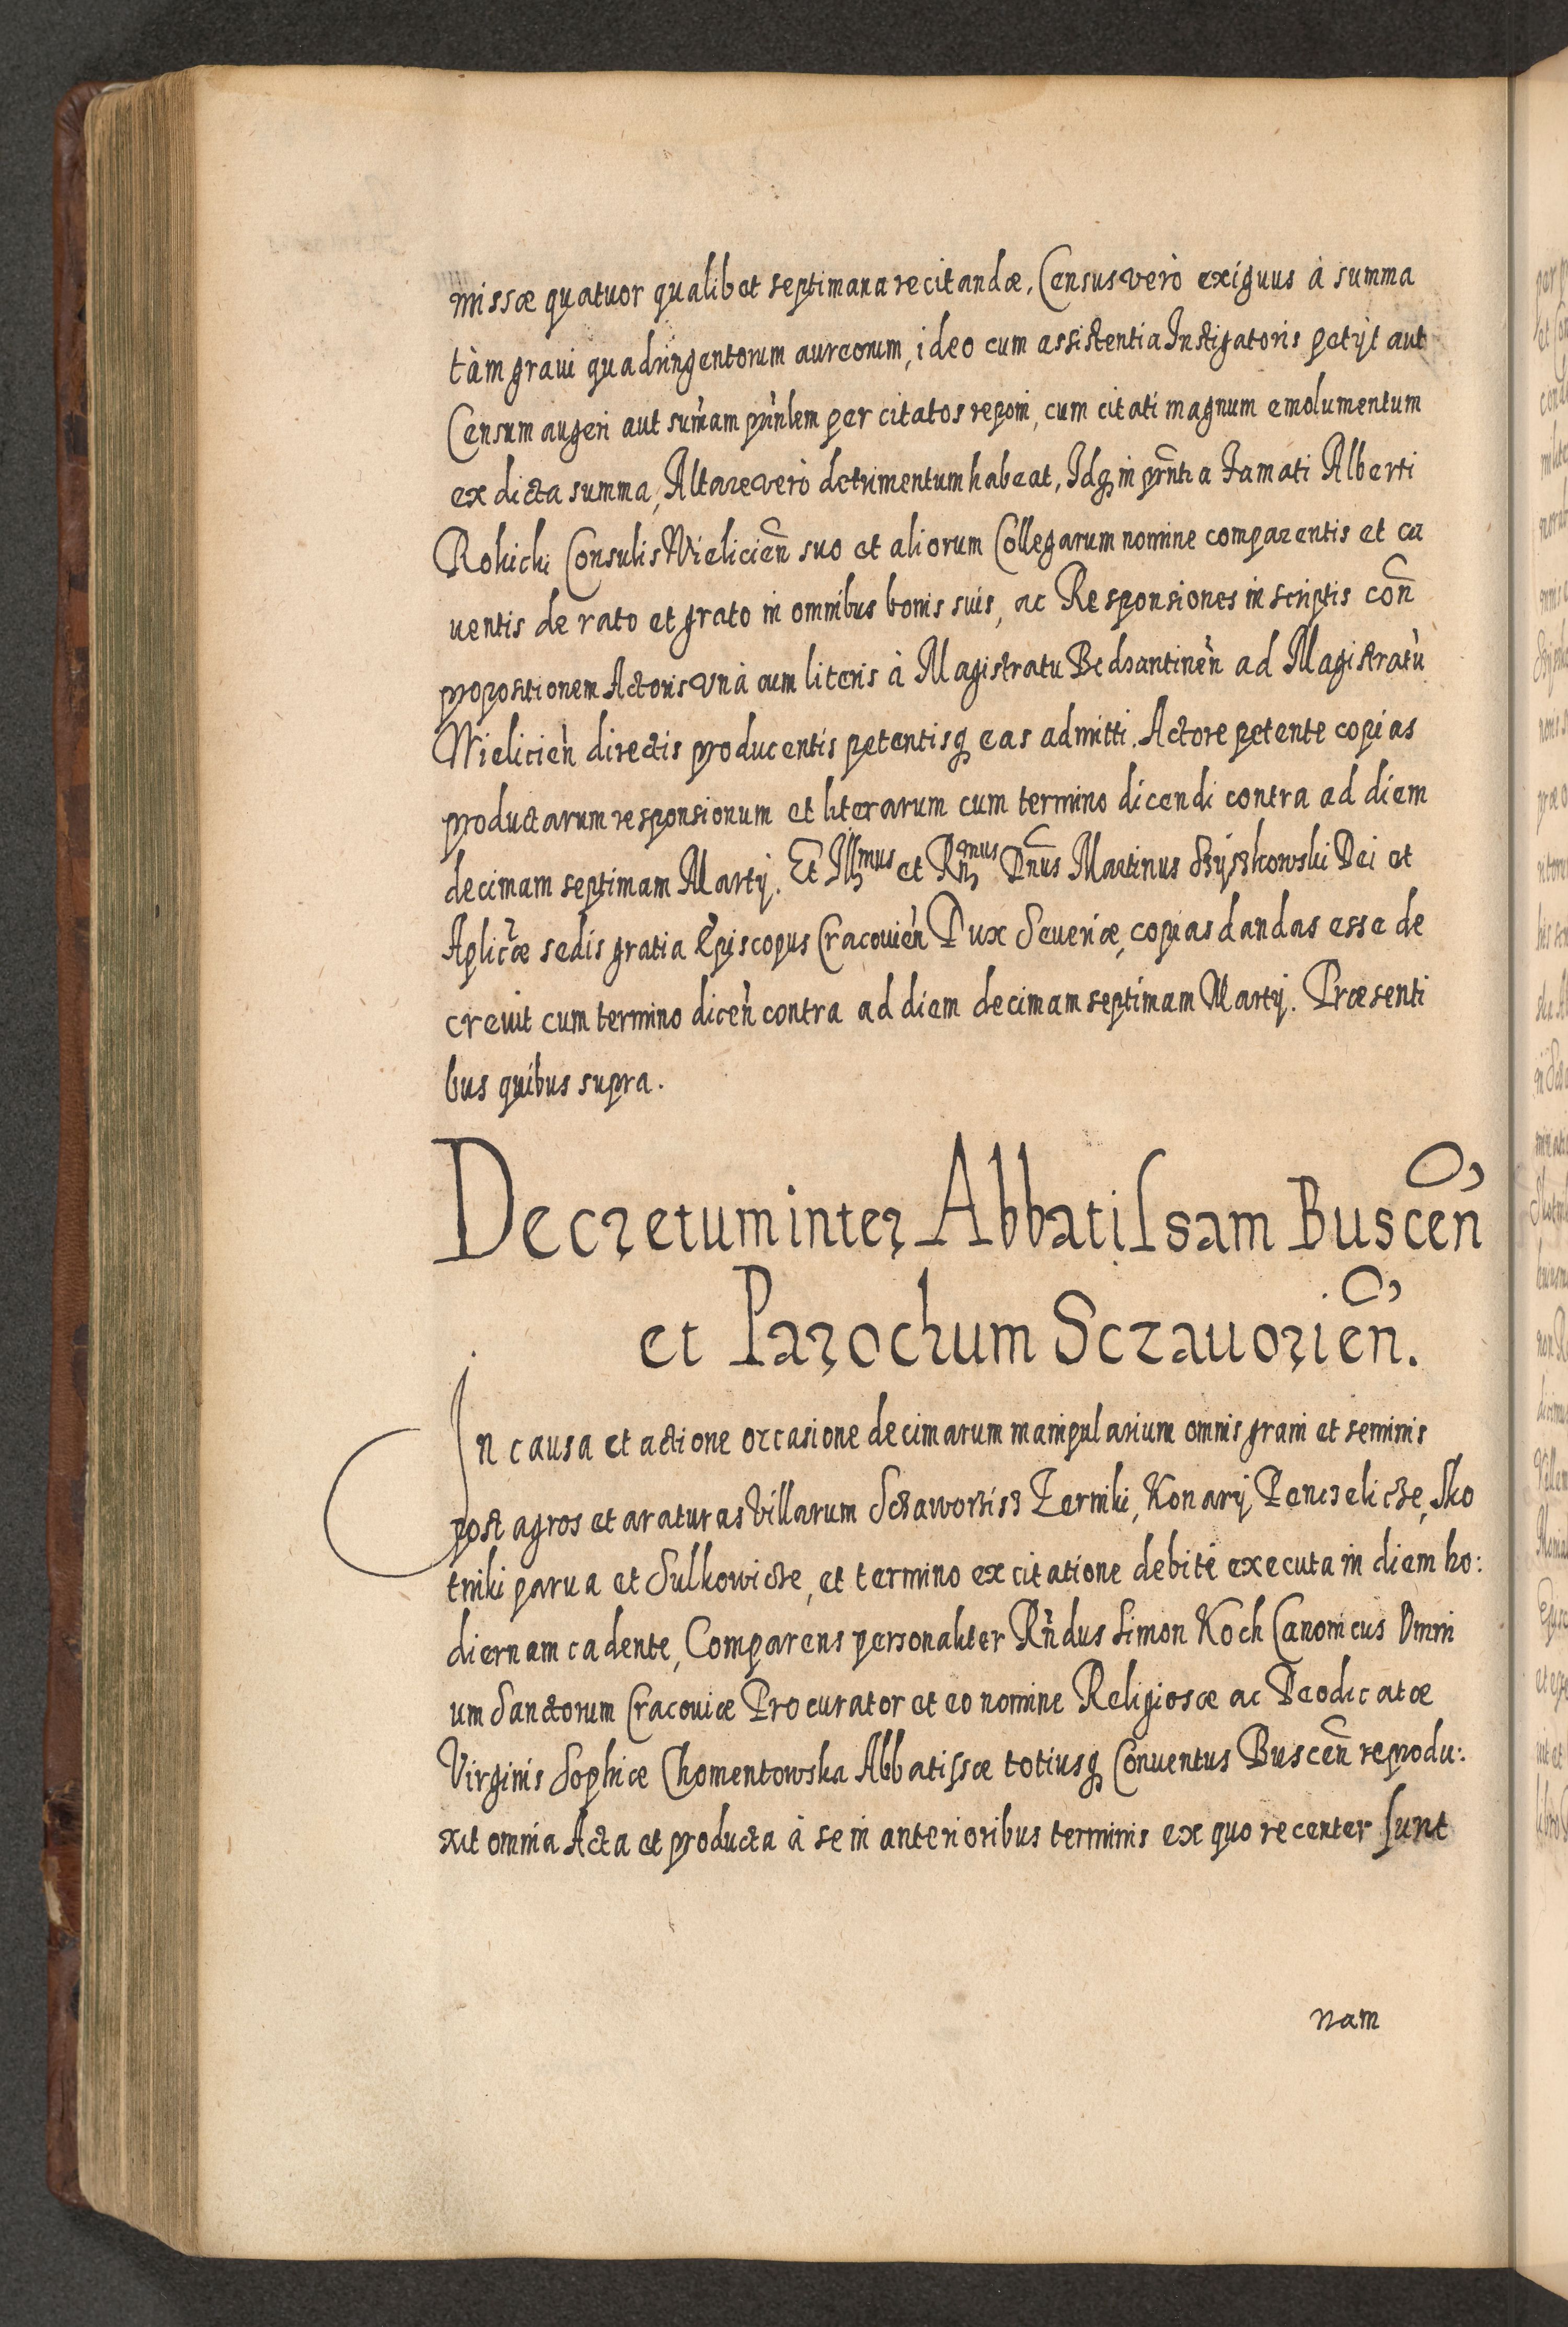 missæ quatuor qualibet septimana recitandæ, Census verò exiguus à summa
tàm graui quadringentorum aureorum, ideo cum assistentia Instigatoris petijt aut
Censum augeri aut sum̃am prin̄lem per citatos reponi, cum citati magnum emolumentum
ex dicta summa, Altare verò detrimentum habeat, Idq̃ in prn̄tia Famati Alberti
Rokicki Consulis Wielicien̄ suo et aliorum Collegarum nomine comparentis et ca
uentis de rato et grato in omnibus bonis suis, ac Responsiones in scriptis con̄
propositionem Actoris vnà cum literis à Magistratu Bodzantinen̄ ad Magistratū
Wielicien̄ directis producentis petentisq̃ eas admitti. Actore petente copias
productarum responsionum et literarum cum termino dicendi contra ad diem
decimam septimam Martij. Et Illmus et Rn̄mus Dn̄us Martinus Szyszkowski Dei et
Aplicæ sedis gratia Episcopus Cracouien̄ Dux Seueriæ, copias dandas esse de
creuit cum termino dicen̄ contra ad diem decimam septimam Martij. Præsenti
bus quibus supra.
Decretum inter Abbatissam Buscen̄
et Parochum Sczauorien̄.
In causa et actione occasione decimarum manipularium omnis grani et seminis
post agros et araturas Villarum Sczaworzisz Zerniki, Konary, Penczelicze, Sko
tniki parua et Sulkowicze, et termino ex citatione debitè executa in diem ho:
diernam cadente, Comparens personaliter Rn̄dus Simon Koch Canonicus Omni
um Sanctorum Cracouiæ Procurator et eo nomine Religiosæ ac Deodicatæ
Virginis Sophiæ Chomentowska Abbatissæ totiusq̃ Conuentus Buscen̄ reprodu:
xit omnia Acta et producta à se in anterioribus terminis ex quo recenter sunt
nam